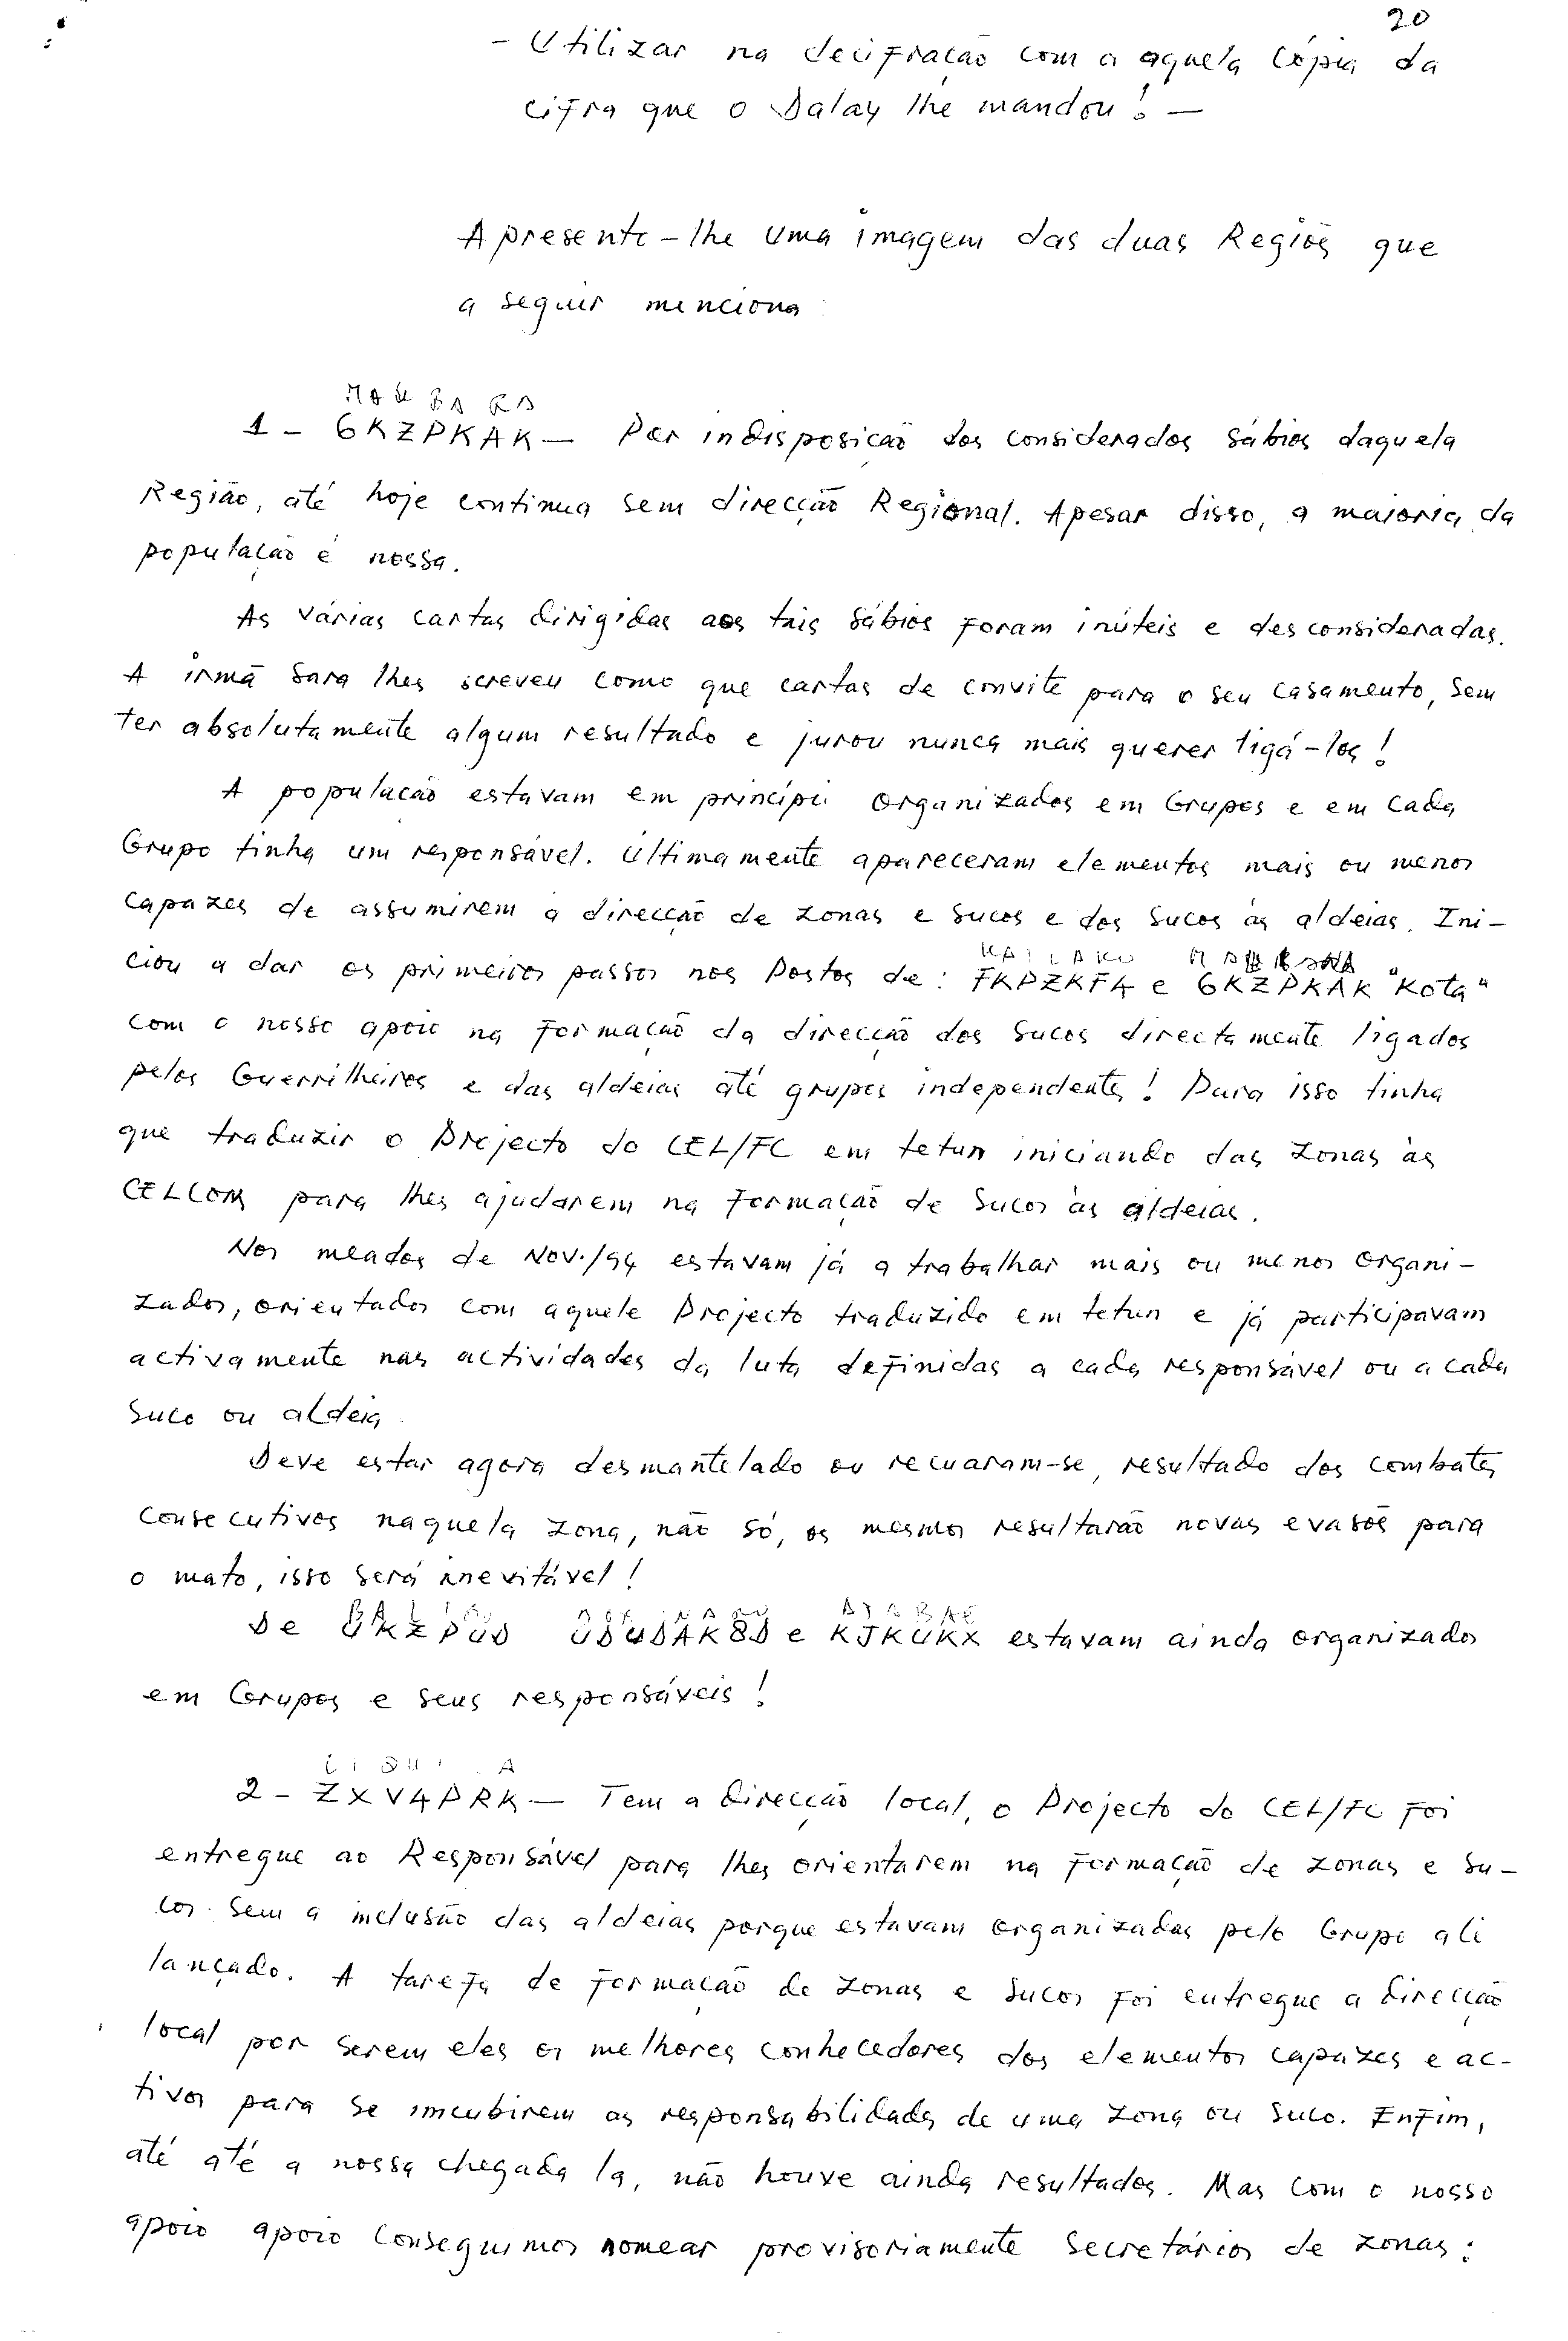 20
- Utilizar na decifração com a aquela cópia da
cifra que o Dalay lhe mandou! -
Apresento-lhe uma imagem das duas Regiões que
a seguir menciona
MAUBARA
1 - GKZPKAK - Por indisposição dos considerados sábios daquela
Região, até hoje continua sem direcção Regional. Apesar disso, a maioria da
população é nossa.
As várias cartas dirigidas aos tais sábios foram inúteis e desconsideradas.
A irmã Sara lhes screveu como que cartas de convite para o seu casamento, sem
ter absolutamente algum resultado e jurou nunca mais querer ligá-los!
A população estavam em princípio organizados em Grupos e em cada
Grupo tinha um responsável. Últimamente apareceram elementos mais ou menos
capazes de assumirem a direcção de zonas e sucos e dos sucos às aldeias. Ini-
KAILAKU
ciou a dar os primeiros passos nos Postos de: FKPZKF4 e GKZPKAK "Kota"
com o nosso apoio na formação da direcção dos sucos directamente ligados
pelos Guerrilheiros e das aldeias até grupos independentes! Para isso tinha
que traduzir o Projecto do CEL/FC em tetun iniciando das zonas às
CELCOM para lhes ajudarem na formação de sucos às aldeias.
Nos meados de Nov./94 estavam já a trabalhar mais ou menos organi-
zados, orientados com aquele Projecto traduzido em tetun e já participavam
activamente nas actividades da luta definidas a cada responsável ou a cada
suco ou aldeia.
Deve estar agora desmantelado ou recuaram-se, resultado dos combates
consecutivos naquela zona, não só, os mesmos resultarão novas evasões para
o mato, isso será inevitável!
De UKZPUD UDUDAK8D e KJKUKX estavam ainda organizados
em Grupos e seus responsáveis!
2 - ZXV4PRK - Tem a direcção local, o Projecto do CEL/FC foi
entregue ao Responsável para lhes orientarem na formação de zonas e su-
cos sem a inclusão das aldeias porque estavam organizadas pelo Grupo ali
lançado. A tarefa de formação de zonas e sucos foi entregue a direcção
local por serem eles os melhores conhecedores dos elementos capazes e ac-
tivos para se incubirem as responsabilidads de uma zona ou suco. Enfim,
até até a nossa chegada la, não houve ainda resultados. Mas com o nosso
apoio apoio conseguimos nomear provisoriamente Secretários de zonas: